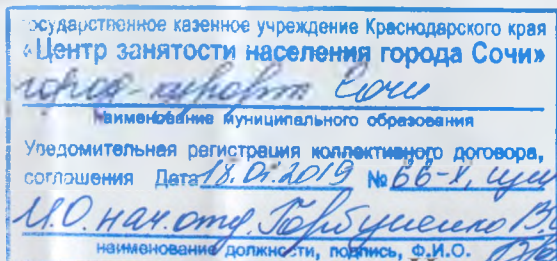 государственное казенное учреждение Краснодарского края
«Центр занятости населения города Сочи»
город-курорт Сочи
наименование муниципального образования
Уведомительная регистрация коллективного договора,
соглашения Дата 18.01.2019 № 66-Х,
И.О. нач. отд. Горбушенко В.
наименование должности, подпись, Ф.И.О.